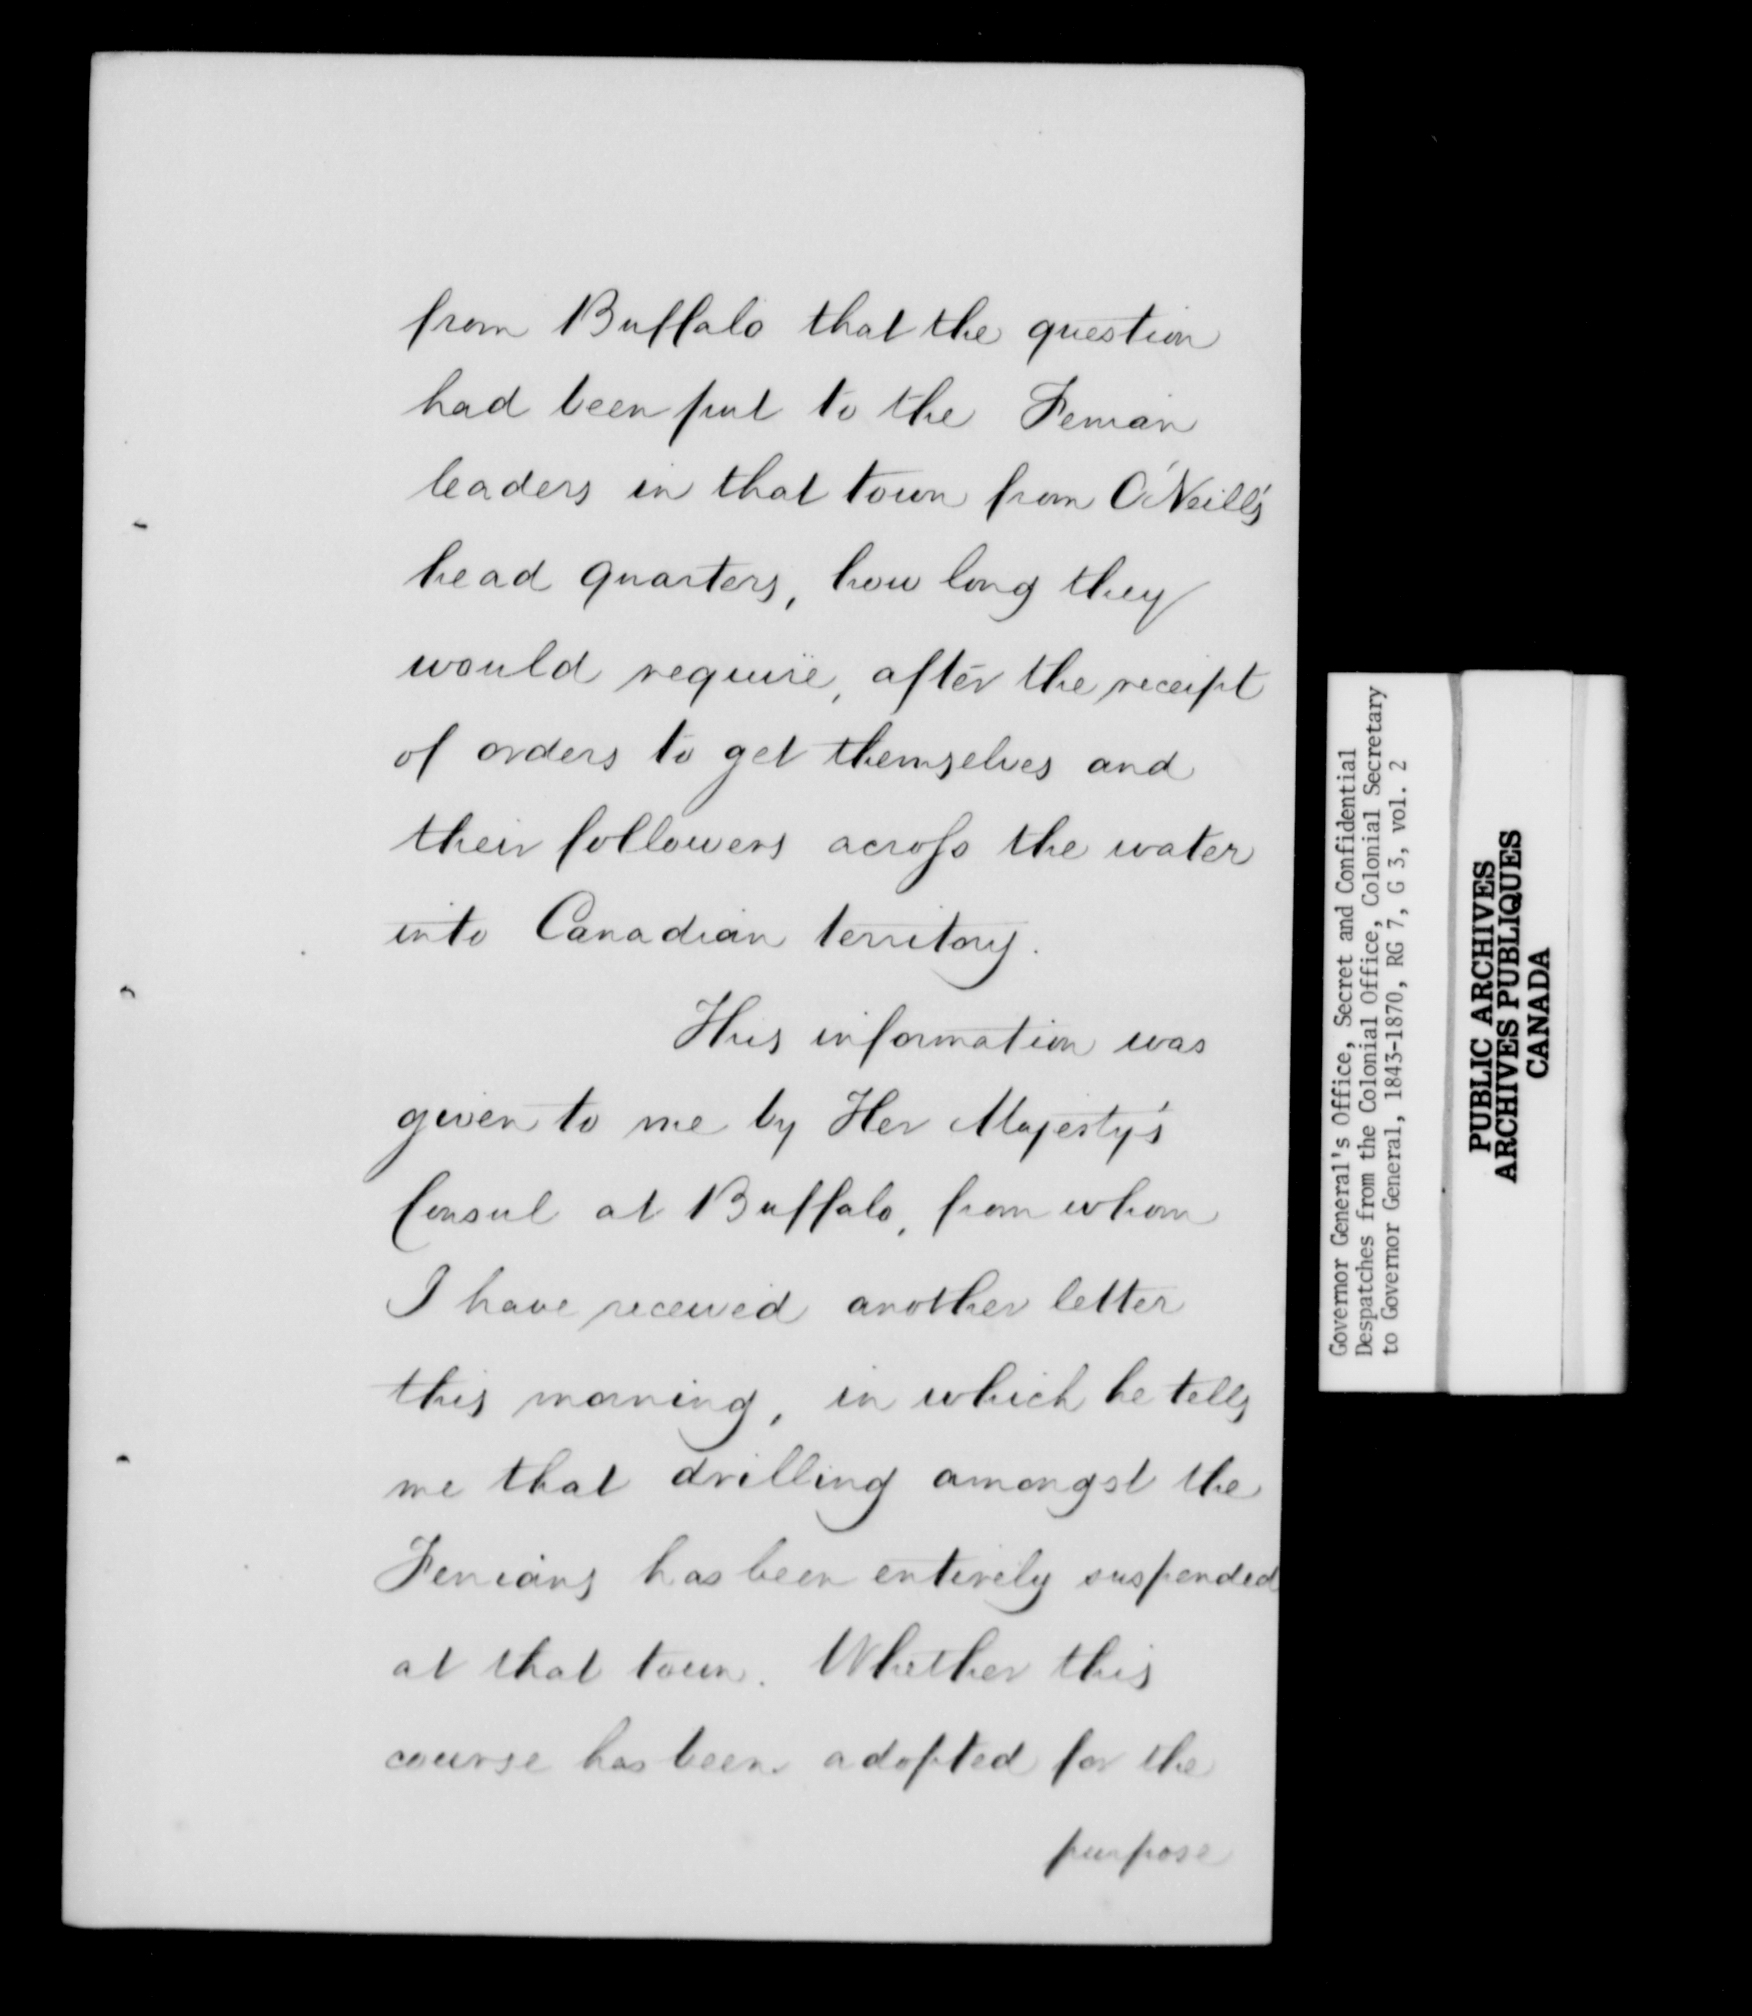 from Buffalo that the question
had been put to the Fenian
leaders in that town from O'Neill's
head quarters, how long they
would require, after the receipt
of orders to get themselves and
their followers across the water
into Canadian territory.
This information was
given to me by Her Majesty's
Consul at Buffalo, from whom
I have received another letter
this morning, in which he tells
me that drilling amongst the
Fenians has been entirely suspended
at that town. Whether this
course has been adopted for the
purpose
Governor General's Office, Secret and Confidential
Despatches from the Colonial Office, Colonial Secretary
to Governor General, 1843-1870, RG 7, G 3, vol. 2
PUBLIC ARCHIVES
ARCHIVES PUBLIQUES
CANADA